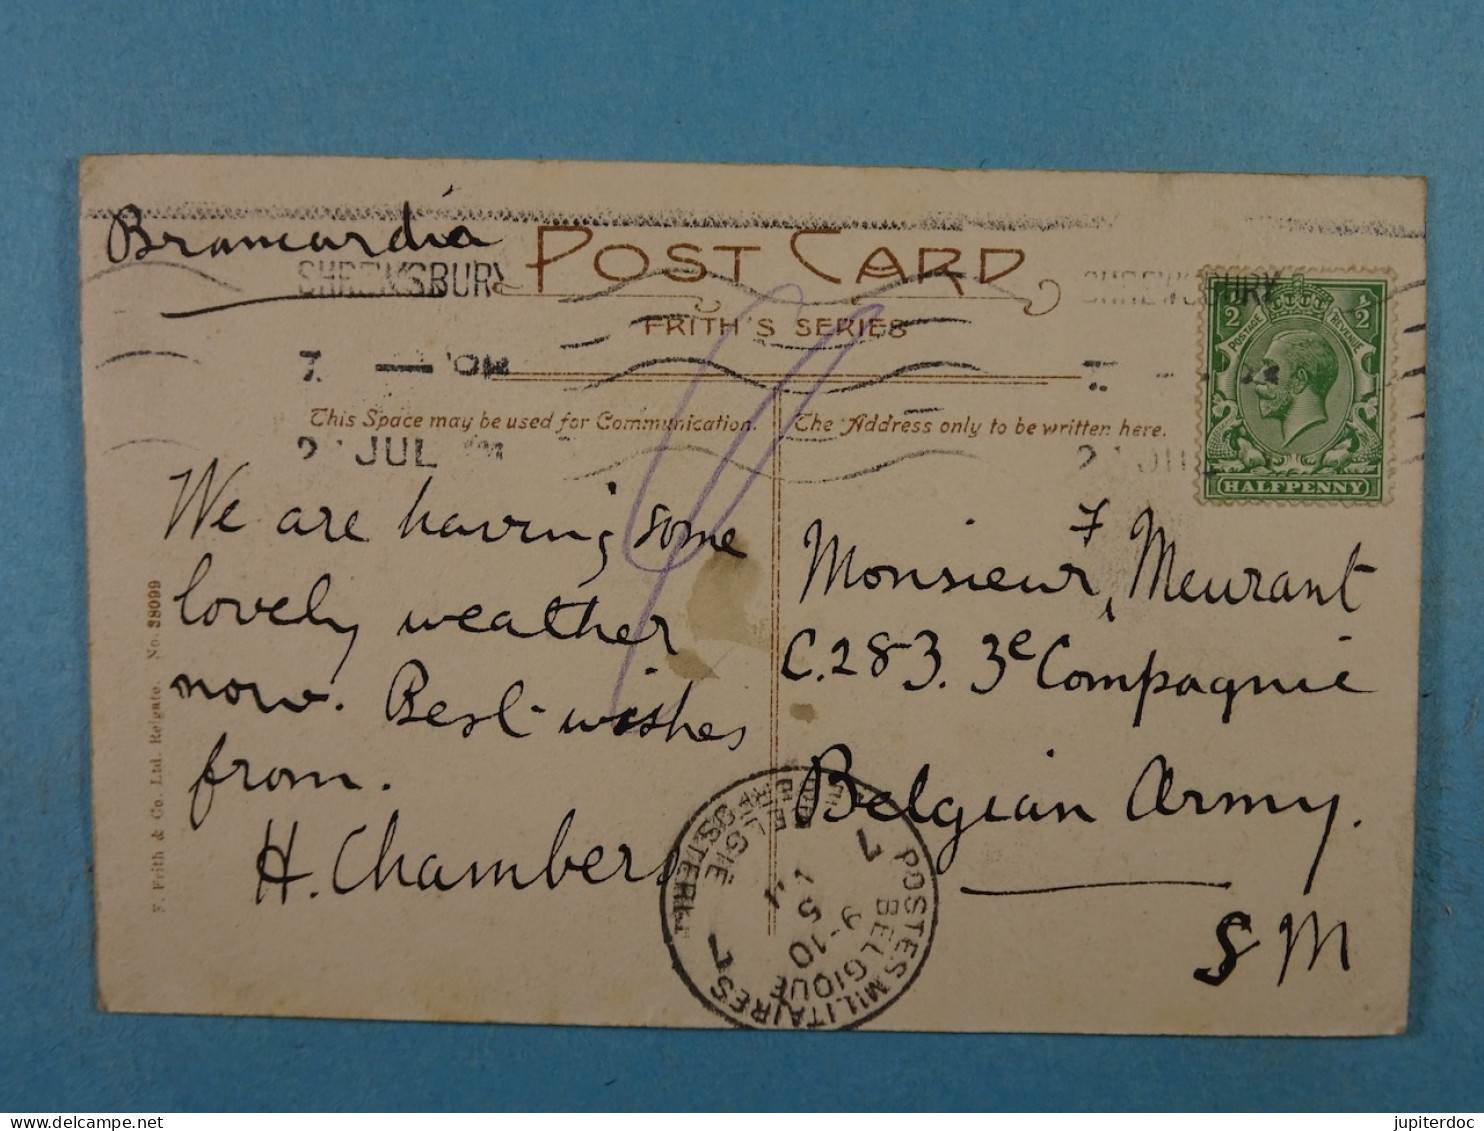 Brancardia
SHREWSBURY
POST CARD
SHREWSBURY
FRITH'S SERIES
This Space may be used for Communication.
The Address only to be written here.
JUL
½ ½
POSTAGE REVENUE
HALFPENNY
We are having some
lovely weather
now. Best wishes
from.
H. Chambers
Monsieur, Meurant
C.283. 3e Compagnie
Belgian Army.
S M
F. Frith & Co. Ltd. Reigate. No. 38099
POSTES MILITAIRES
BELGIQUE
9-10
BELGIE
jupiterdoc
www.delcampe.net